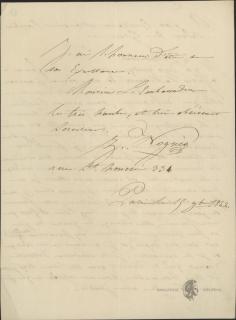 J'ai l'honneur d'être de
son Excellence
Monsieur l'Ambassadeur
le très humble, et très obéissant
Serviteur
rue St honoré 334
Paris le 15 9bre 1842